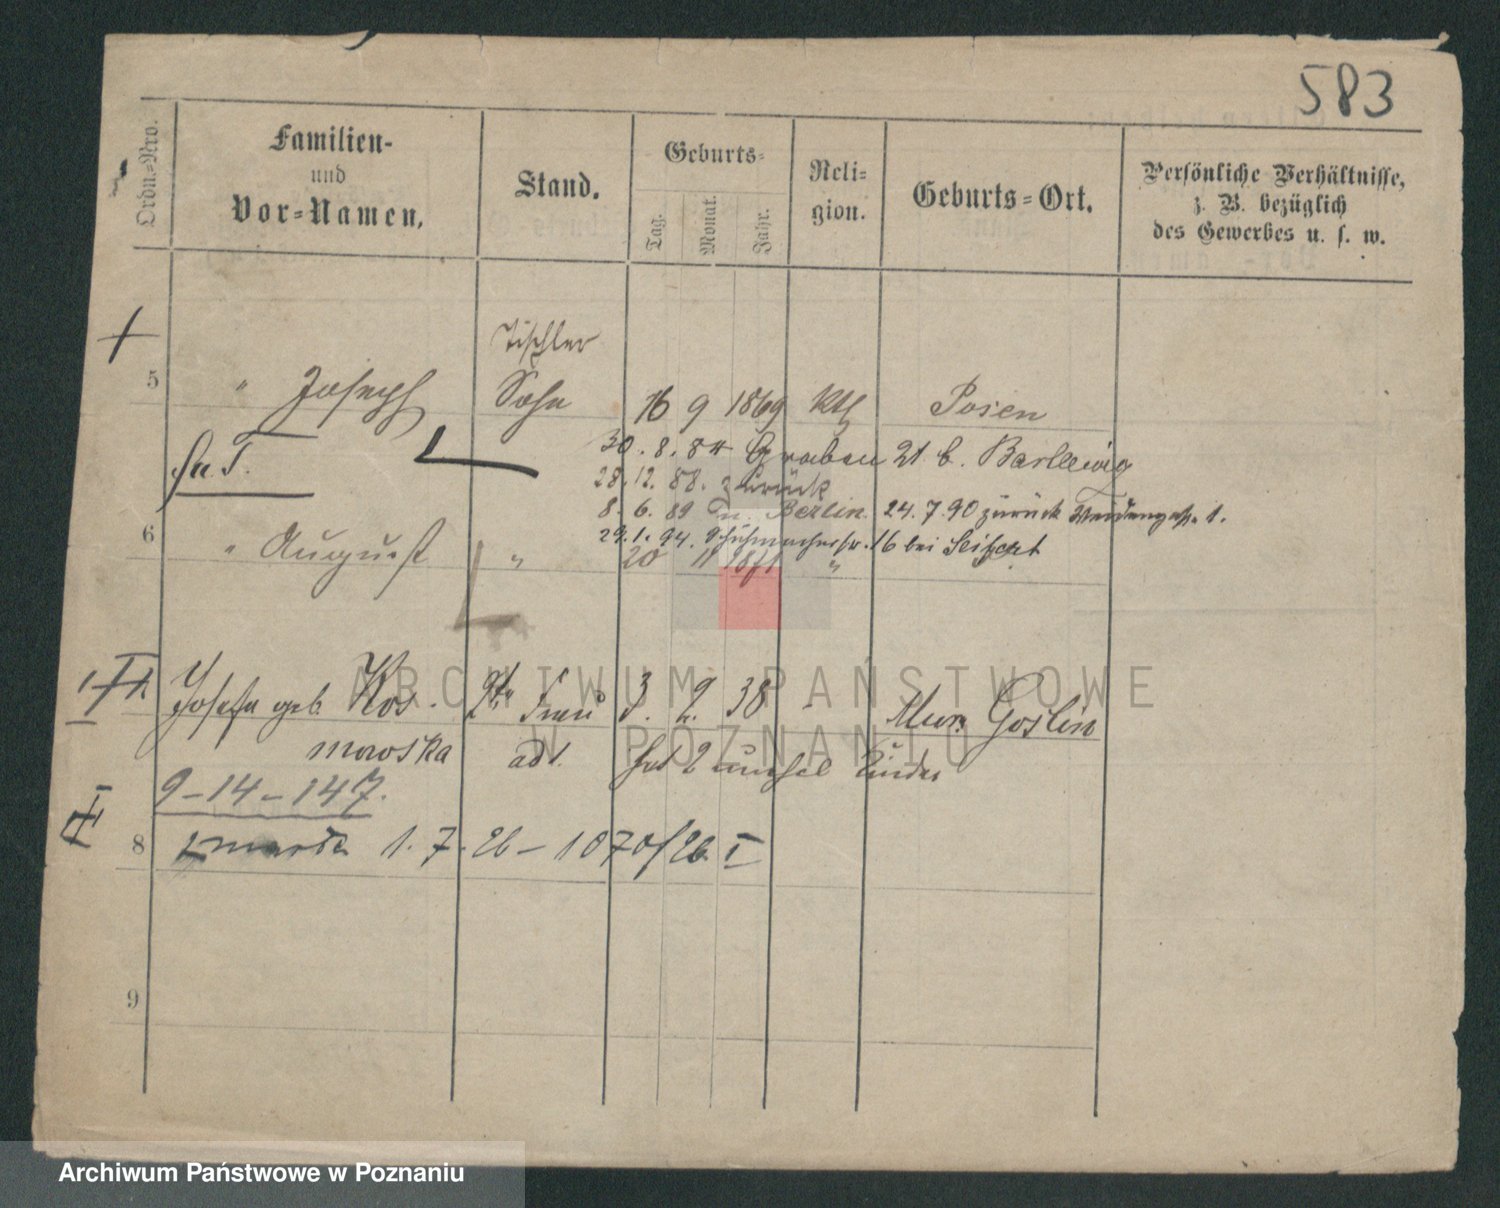 583
Ordn.=Nro.
Familien-
und
Vor=Namen.
Stand.
Geburts=
Tag.
Monat.
Jahr.
Reli=
gion.
Geburts=Ort.
Persönliche Verhältnisse,
z. B. bezüglich
des Gewerbes u. s. w.
Tischler
5 " Joseph Sohn 16 9 1869 kth Posen
30. 8. 84 Graben 21 b.
28. 12. 88. zurück
8. 6. 89 n. Berlin. 24. 7. 90 zurück 1.
6 " August "
29. 1. 94. 16 bei Seifert
20 11 1871 "
Josefa geb Kos- 2te Frau 3. 2. 38 Mur. Goslin
mowska
hat 2 Kinder
9-14-147.
8 zmarła 1. 7. 26 - 1070/26 I
9
ARCHIWUM PAŃSTWOWE
W POZNANIU
Archiwum Państwowe w Poznaniu